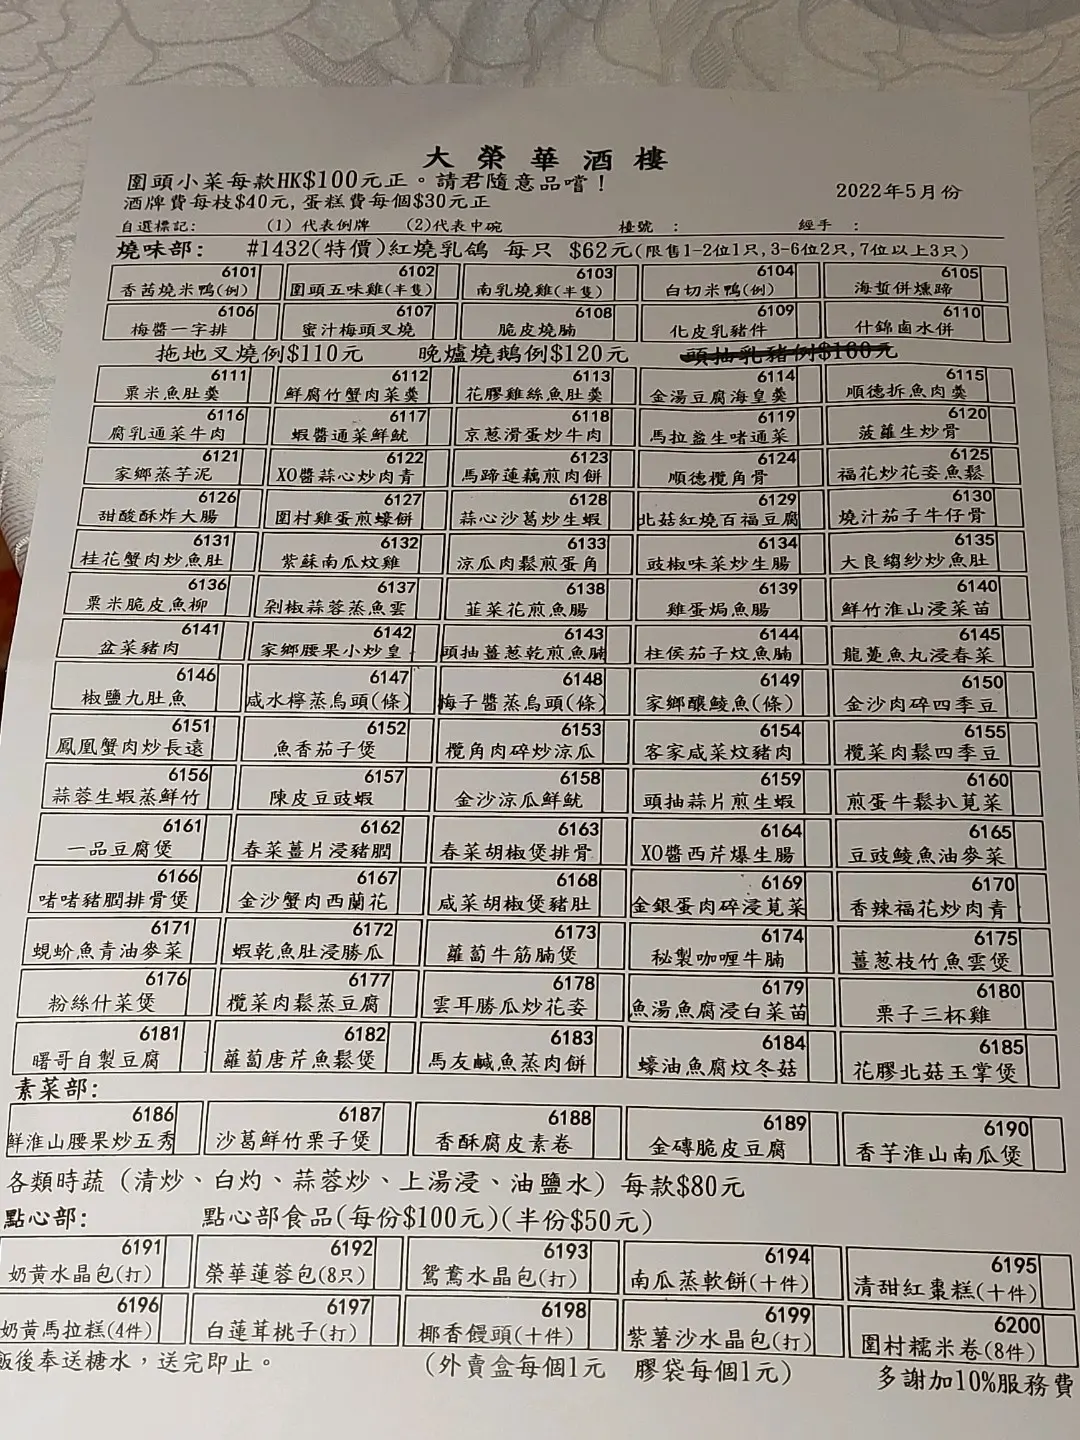 大榮華酒樓
圍頭小菜每款HK$100元正。請君隨意品嚐！
2022年5月份
酒牌費每枝$40元, 蛋糕費每個$30元正
自選標記: (1) 代表例牌 (2)代表中碗 檯號 : 經手 :
燒味部: #1432(特價)紅燒乳鴿 每只 $62元(限售1-2位1只,3-6位2只,7位以上3只)
6101 6102 6103 6104 6105
香茜燒米鴨(例) 圍頭五味雞(半隻) 南乳燒雞(半隻) 白切米鴨(例) 海蜇併燻蹄
6106 6107 6108 6109 6110
梅醬一字排 蜜汁梅頭叉燒 脆皮燒腩 化皮乳豬件 什錦鹵水併
拖地叉燒例$110元 晚爐燒鵝例$120元 頭抽乳豬例$160元
6111 6112 6113 6114 6115
粟米魚肚羹 鮮腐竹蟹肉菜羹 花膠雞絲魚肚羹 金湯豆腐海皇羹 順德拆魚肉羹
6116 6117 6118 6119 6120
腐乳通菜牛肉 蝦醬通菜鮮魷 京蔥滑蛋炒牛肉 馬拉盞生啫通菜 菠蘿生炒骨
6121 6122 6123 6124 6125
家鄉蒸芋泥 XO醬蒜心炒肉青 馬蹄蓮藕煎肉餅 順德欖角骨 福花炒花姿魚鬆
6126 6127 6128 6129 6130
甜酸酥炸大腸 圍村雞蛋煎蠔餅 蒜心沙葛炒生蝦 北菇紅燒百福豆腐 燒汁茄子牛仔骨
6131 6132 6133 6134 6135
桂花蟹肉炒魚肚 紫蘇南瓜炆雞 涼瓜肉鬆煎蛋角 豉椒味菜炒生腸 大良縐紗炒魚肚
6136 6137 6138 6139 6140
粟米脆皮魚柳 剁椒蒜蓉蒸魚雲 韮菜花煎魚腸 雞蛋焗魚腸 鮮竹淮山浸菜苗
6141 6142 6143 6144 6145
盆菜豬肉 家鄉腰果小炒皇 頭抽薑蔥乾煎魚腩 柱侯茄子炆魚腩 龍躉魚丸浸春菜
6146 6147 6148 6149 6150
椒鹽九肚魚 咸水檸蒸烏頭(條) 梅子醬蒸烏頭(條) 家鄉釀鯪魚(條) 金沙肉碎四季豆
6151 6152 6153 6154 6155
鳳凰蟹肉炒長遠 魚香茄子煲 欖角肉碎炒涼瓜 客家咸菜炆豬肉 欖菜肉鬆四季豆
6156 6157 6158 6159 6160
蒜蓉生蝦蒸鮮竹 陳皮豆豉蝦 金沙涼瓜鮮魷 頭抽蒜片煎生蝦 煎蛋牛鬆扒莧菜
6161 6162 6163 6164 6165
一品豆腐煲 春菜薑片浸豬膶 春菜胡椒煲排骨 XO醬西芹爆生腸 豆豉鯪魚油麥菜
6166 6167 6168 6169 6170
啫啫豬膶排骨煲 金沙蟹肉西蘭花 咸菜胡椒煲豬肚 金銀蛋肉碎浸莧菜 香辣福花炒肉青
6171 6172 6173 6174 6175
蜆蚧魚青油麥菜 蝦乾魚肚浸勝瓜 蘿蔔牛筋腩煲 秘製咖喱牛腩 薑蔥枝竹魚雲煲
6176 6177 6178 6179 6180
粉絲什菜煲 欖菜肉鬆蒸豆腐 雲耳勝瓜炒花姿 魚湯魚腐浸白菜苗 栗子三杯雞
6181 6182 6183 6184 6185
曙哥自製豆腐 蘿蔔唐芹魚鬆煲 馬友鹹魚蒸肉餅 蠔油魚腐炆冬菇 花膠北菇玉掌煲
素菜部:
6186 6187 6188 6189 6190
鮮淮山腰果炒五秀 沙葛鮮竹栗子煲 香酥腐皮素卷 金磚脆皮豆腐 香芋淮山南瓜煲
各類時蔬 (清炒、白灼、蒜蓉炒、上湯浸、油鹽水) 每款$80元
點心部: 點心部食品(每份$100元)(半份$50元)
6191 6192 6193 6194 6195
奶黃水晶包(打) 榮華蓮蓉包(8只) 鴛鴦水晶包(打) 南瓜蒸軟餅(十件) 清甜紅棗糕(十件)
6196 6197 6198 6199 6200
奶黃馬拉糕(4件) 白蓮茸桃子(打) 椰香饅頭(十件) 紫薯沙水晶包(打) 圍村糯米卷(8件)
飯後奉送糖水，送完即止。 (外賣盒每個1元 膠袋每個1元) 多謝加10%服務費